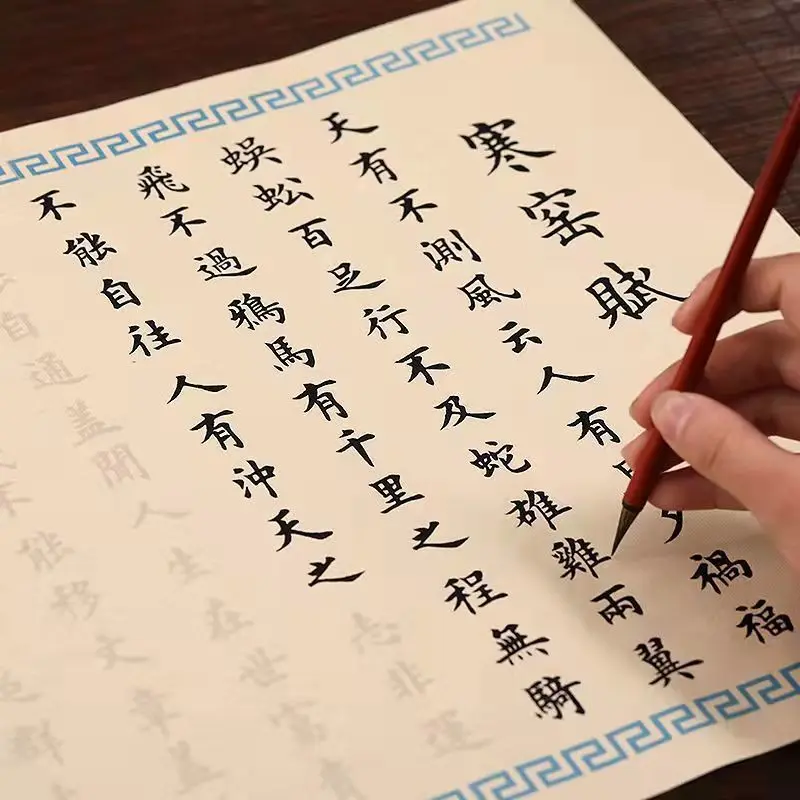 寒窑賦
天有不測風云人有禍福
蜈蚣百足行不及蛇雄雞兩翼
飛不過鴉馬有千里之程無騎
不能自往人有沖天之志非運
能自通盖聞人生在世富
能移文章盖
群